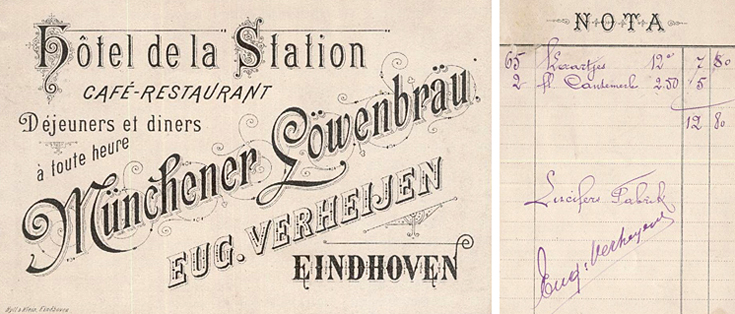 Hôtel de la Station
CAFÉ-RESTAURANT
Déjeuners et diners
à toute heure
Münchener Löwenbräu.
EUG. VERHEIJEN
EINDHOVEN
NOTA
65 Kaartjes 12° 7 80
2 fl 2.50 5
12 80
Lucifers Fabriek
Eug. Verheyen